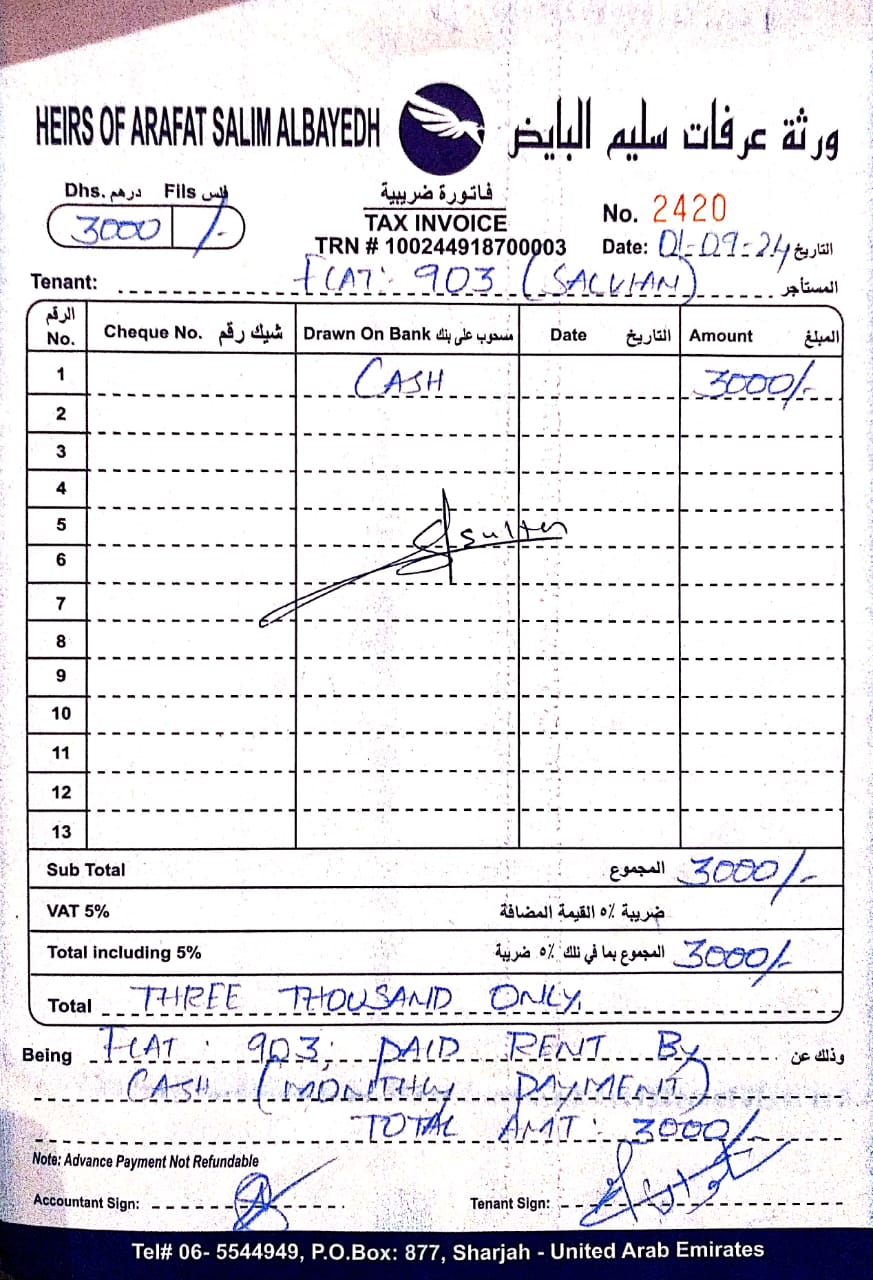 HEIRS OF ARAFAT SALIM ALBAYEDH ورثة عرفات سليم البايض
Dhs. درهم Fils فلس
3000 /-
فاتورة ضريبية
TAX INVOICE
TRN # 100244918700003
No. 2420
Date: 01-09-24 التاريخ
Tenant: FLAT: 903 (SALVHAN) المستأجر
الرقم No. Cheque No. شيك رقم Drawn On Bank مسحوب على بنك Date التاريخ Amount المبلغ
1 CASH 3000/-
2
3
4
5 Sulten
6
7
8
9
10
11
12
13
Sub Total المجموع 3000/-
VAT 5% ضريبة ٥٪ القيمة المضافة
Total including 5% المجموع بما في ذلك ٥٪ ضريبة 3000/-
Total THREE THOUSAND ONLY.
Being FLAT: 903; PAID RENT By وذلك عن
CASH (MONTHLY PAYMENT)
TOTAL AMT: 3000/-
Note: Advance Payment Not Refundable
Accountant Sign: Tenant Sign:
Tel# 06- 5544949, P.O.Box: 877, Sharjah - United Arab Emirates